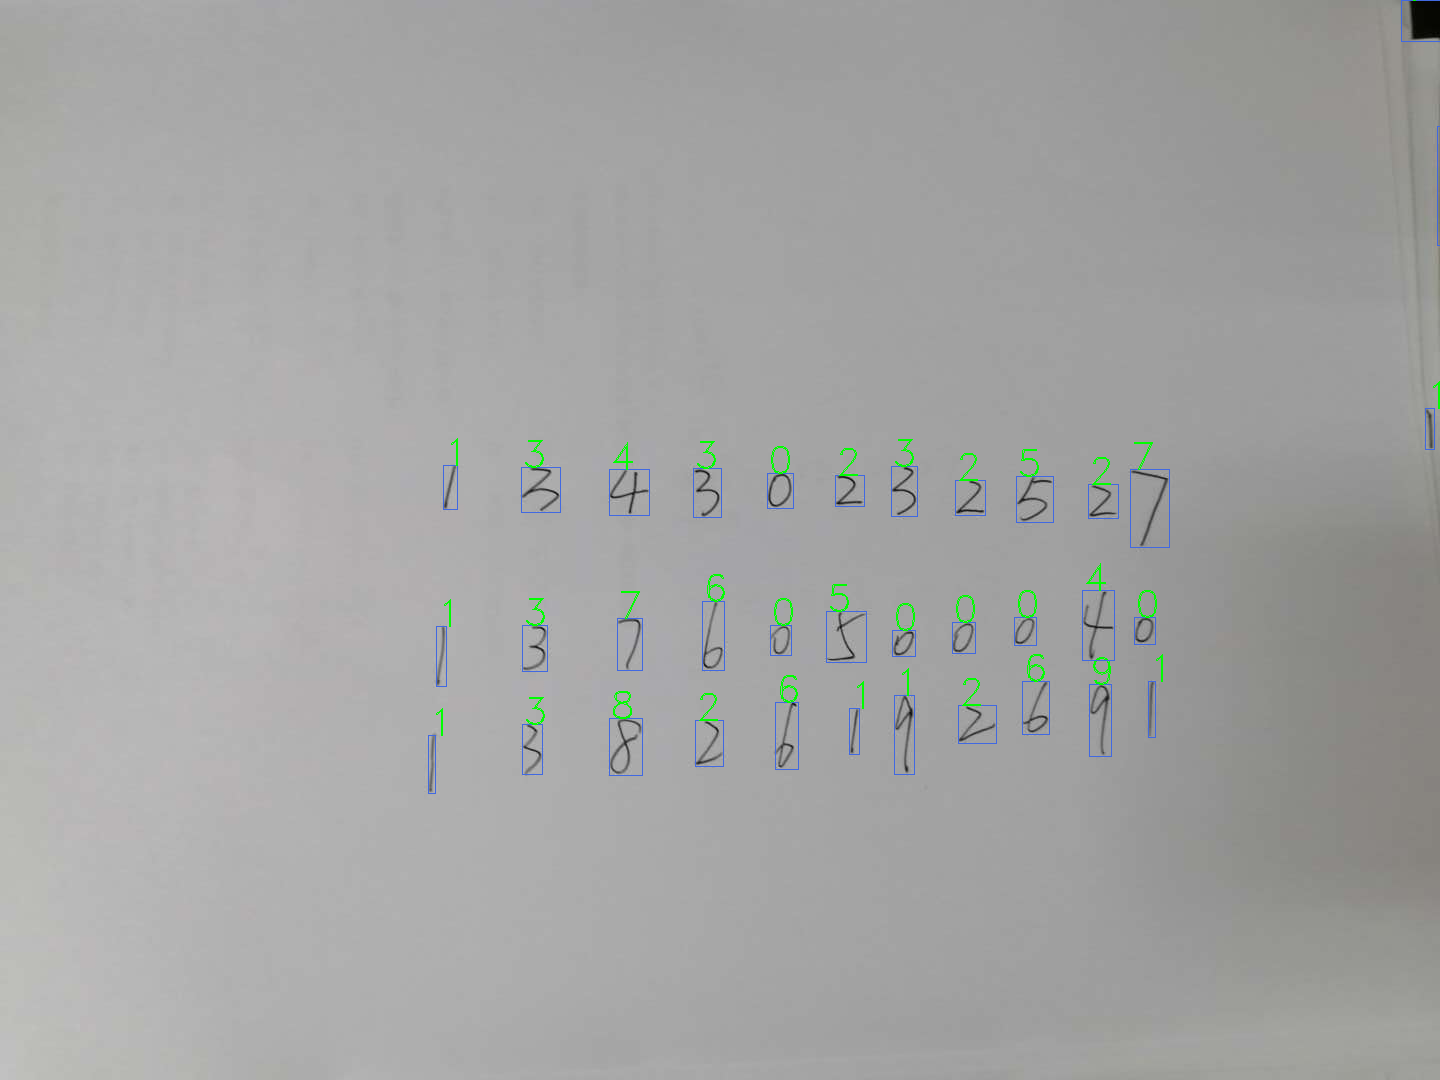 1
1 3 4 3 0 2 3 2 5 2 7
1 3 4 3 0 2 3 2 5 2 7
1 3 7 6 0 5 0 0 0 4 0
1 3 7 6 0 5 0 0 0 4 0
1 3 8 2 6 1 1 2 6 9 1
1 3 8 2 6 1 9 2 6 9 1